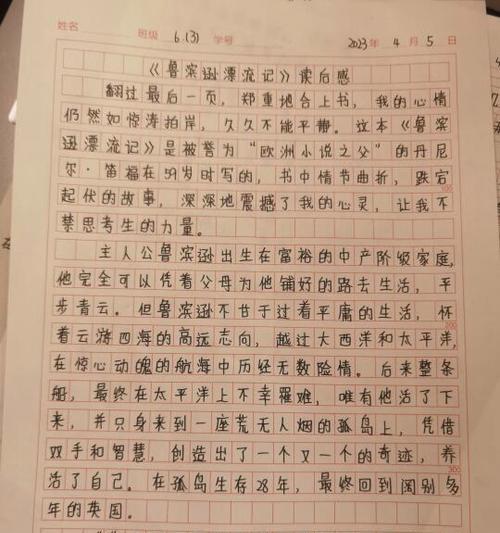 姓名 班级 6.(3) 学号 2023年 4月 5日
《鲁滨逊漂流记》读后感
翻过最后一页，郑重地合上书，我的心情
仍然如惊涛拍岸，久久不能平静。这本《鲁滨
逊漂流记》是被誉为“欧洲小说之父”的丹尼
尔·笛福在59岁时写的，书中情节曲折，跌宕
起伏的故事，深深地震撼了我的心灵，让我不
100
禁思考生的力量。
主人公鲁滨逊出生在富裕的中产阶级家庭，
他完全可以凭着父母为他铺好的路去生活，平
步青云。但鲁滨逊不甘于过着平庸的生活，怀
200
着云游四海的高远志向，越过大西洋和太平洋，
在惊心动魄的航海中历经无数险情。后来整条
船，最终在太平洋上不幸罹难，唯有他活了下
来，并只身来到一座荒无人烟的孤岛上，凭借
双手和智慧，创造出了一个又一个的奇迹，养
300
活了自己。在孤岛生存28年，最终回到阔别多
年的英国。